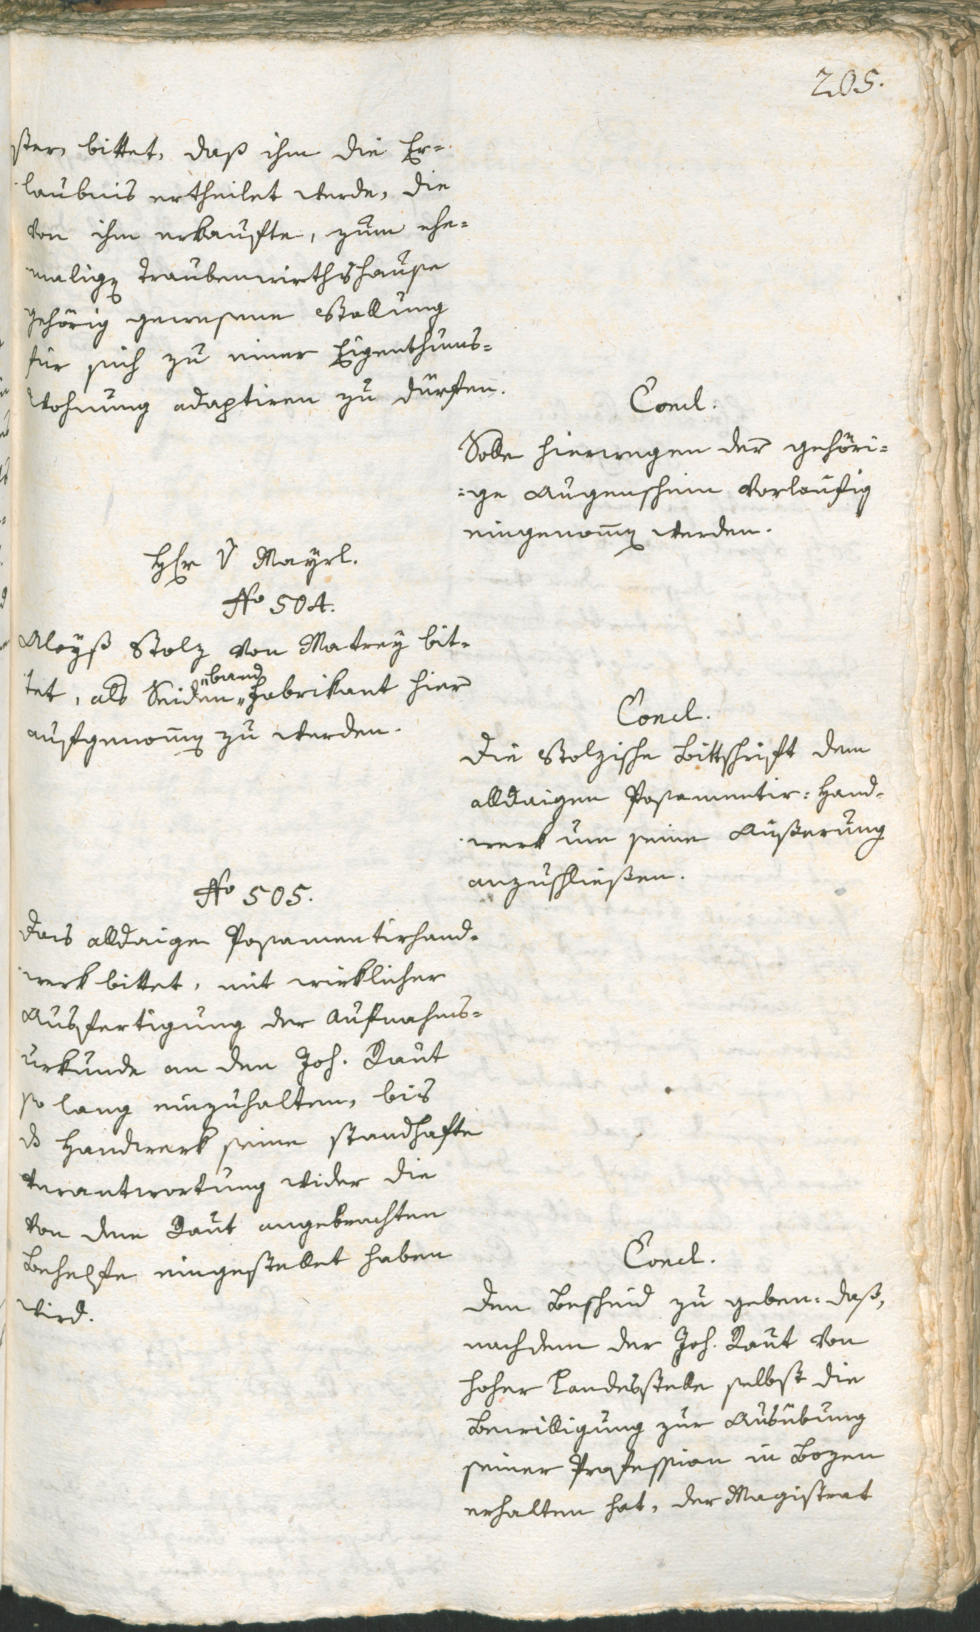 205.
ster, bittet, daß ihm die Er=
laubnis ertheilet werde, die
von ihm erkaufte, zum ehe=
malig̃ Traubenwirthshause
gehörig gewesene Stallung
für sich zu einer Eigenthums=
wohnung adaptiren zu dürften.
Concl:
Solle hierwegen der gehöri=
=ge Augenschein vorläufig
eingenom̅̃ werden.
Hr v Mayrl.
No 504.
Aloyß Stolz von Matrey bit=
tet, als Seiden„band„Fabrikant hier
aufgenom̅̃ zu werden.
Concl.
Die Stolzische Bittschrift dem
alldaigen Posamentir=Hand=
werk um seine Äußerung
anzuschließen.
No 505.
Das alldaige Posamentirhand=
werk bittet, mit wirklicher
Ausfertigung der Aufnahms=
urkunde an den Joh. Raut
so lang einzuhalten, bis
ds Handwerk seine standhafte
Verantwortung wider die
von dem Raut angebrachten
Behelfe eingestellet haben
wird.
Concl.
Den Bescheid zu geben: daß,
nachdem der Joh. Raut von
hoher Landesstelle selbst die
Bewilligung zur Ausübung
seiner Profession in Bozen
erhalten hat, der Magistrat